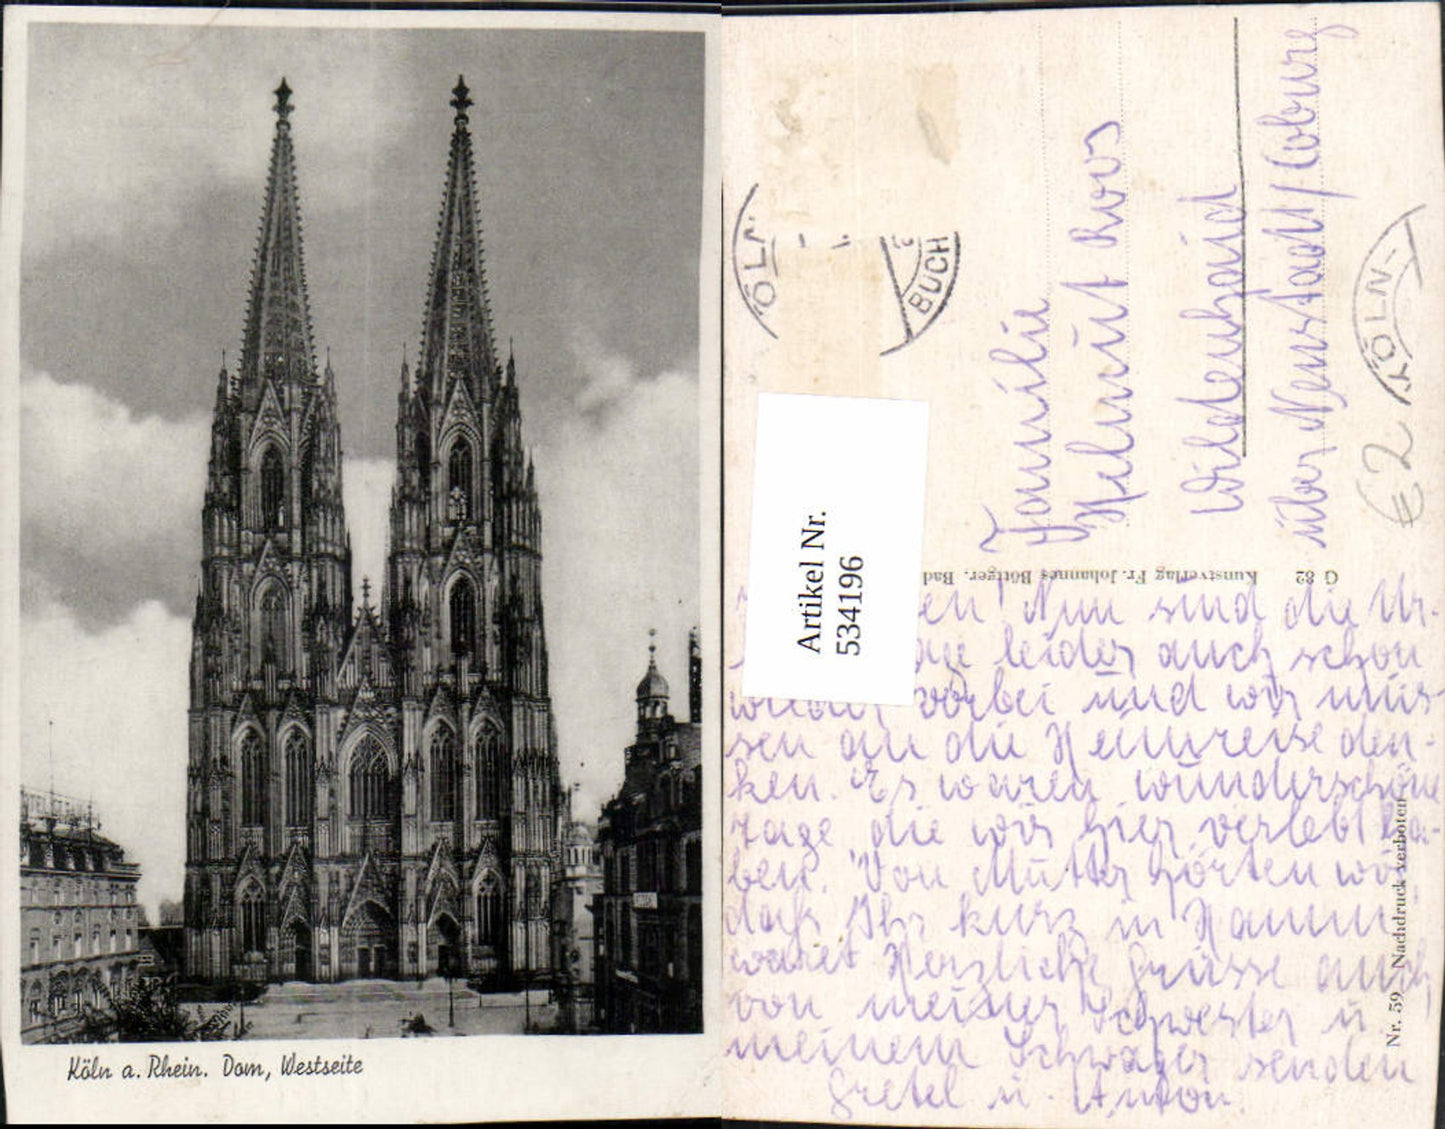 Köln a. Rhein. Dom, Westseite
KÖLN
BUCH
KÖLN-
Familie
Helmut Roos
Wildenheid
über Neustadt / Coburg
€ 2
Artikel Nr.
534196
G 82 Kunstverlag Fr. Johannes Böttger, Bad
Nr. 59 Nachdruck verboten
en! Nun sind die Ur-
age leider auch schon
wieder vorbei und wir müs-
sen an die Heimreise den-
ken. Es waren wunderschöne
Tage die wir hier verlebt ha-
ben. Von Mutter hörten wir
daß Ihr kurz in Hamm
waret Herzliche Grüsse auch
von meiner Schwester u.
meinem Schwager senden
Gretel u. Anton.